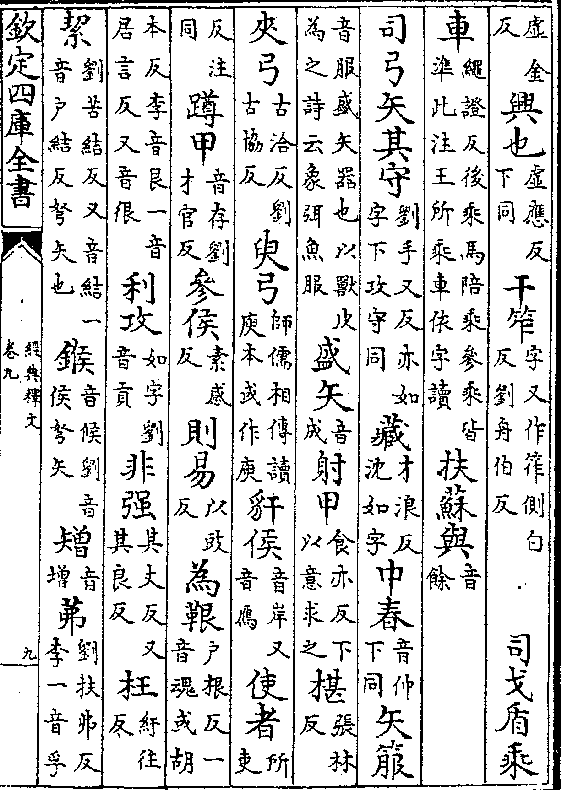 虚金反興也虚應反下同干笮字又作筰側白反劉舟伯反司戈盾乘
車繩證反後乘馬陪乘參乘皆準此注王所乘車依字讀扶蘇與音餘
司弓矢其守劉手又反亦如字下攻守同藏才浪反沈如字中春音仲下同矢箙
音服盛矢器也以獸皮為之詩云象弭魚服盛矢音成射甲食亦反下以意求之椹張林反
夾弓古洽反劉古協反臾弓師儒相傳讀庾本或作庾豻侯音岸又音鴈使者所吏
反注同蹲甲音存劉才官反參侯素感反則易以豉反為鞎户根反一音魂或胡
本反李音艮一音居言反又音佷利攻如字劉音貢非强其丈反又其良反枉紆往反
絜劉苦結反又音結一音户結反弩矢也鍭音候劉音侯弩矢矰音增茀劉扶弗反李一音孚
欽定四庫全書
經典釋文
卷九
九